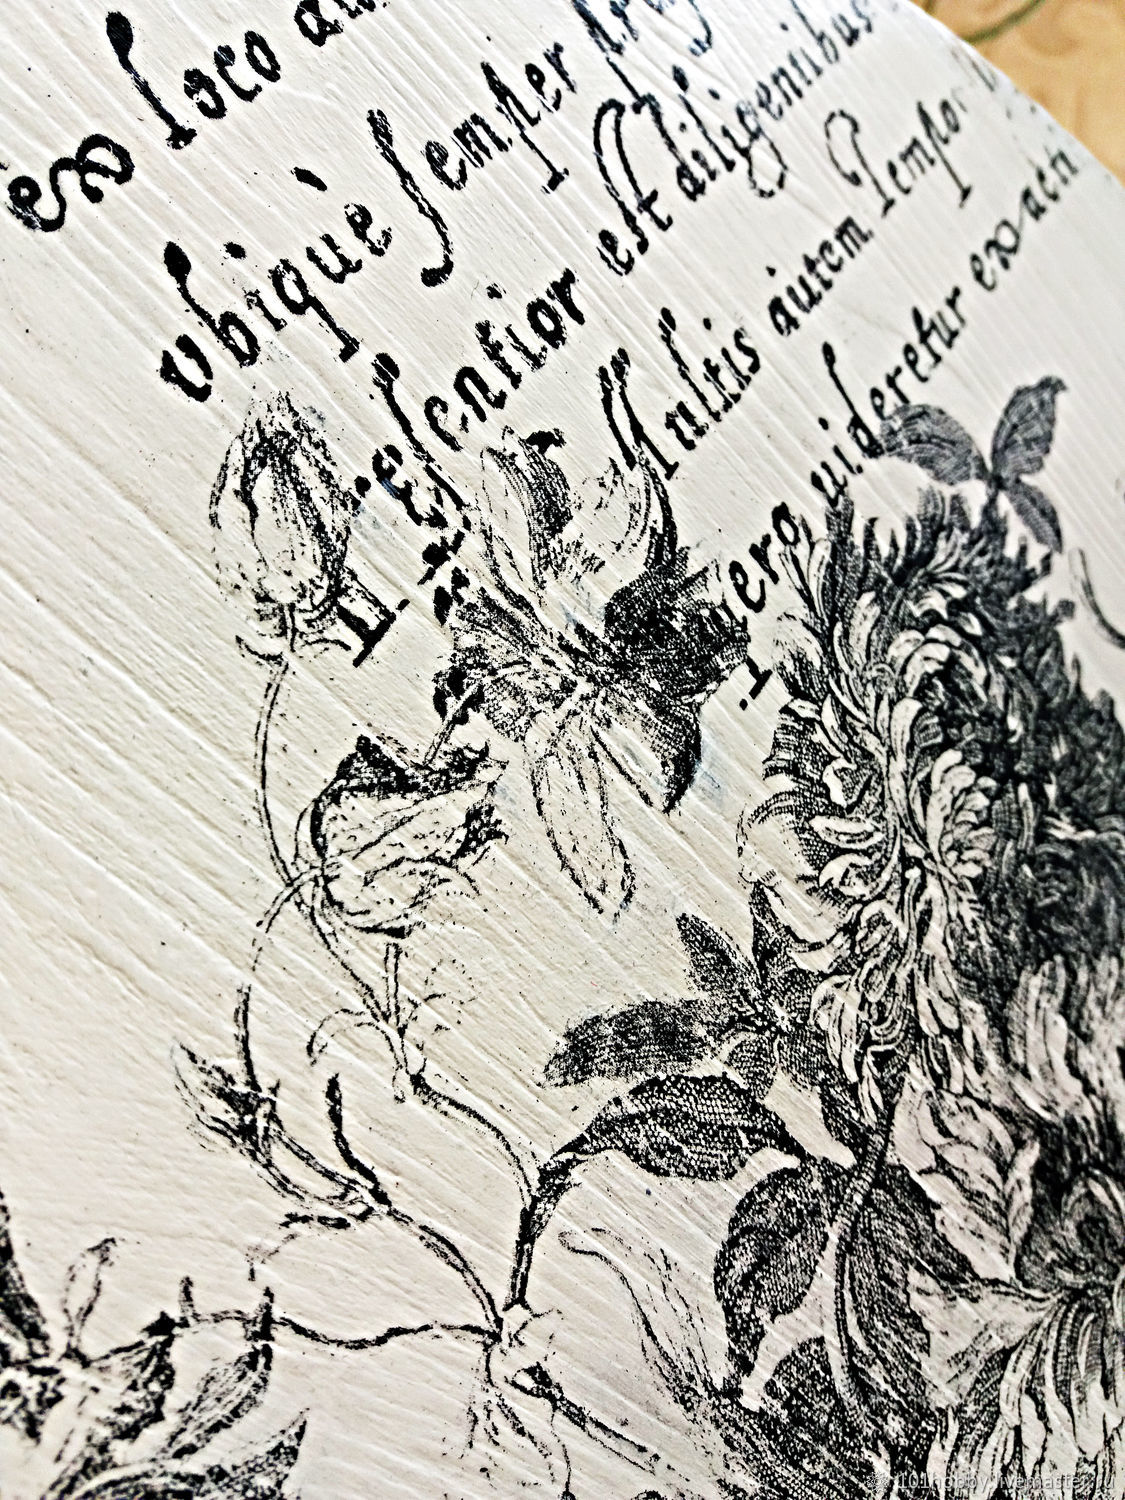 ex loco
ubiquè semper
præsentior est diligentibus
Multis autem tempo
vero uideretur ex acti
101hobby.livemaster.ru